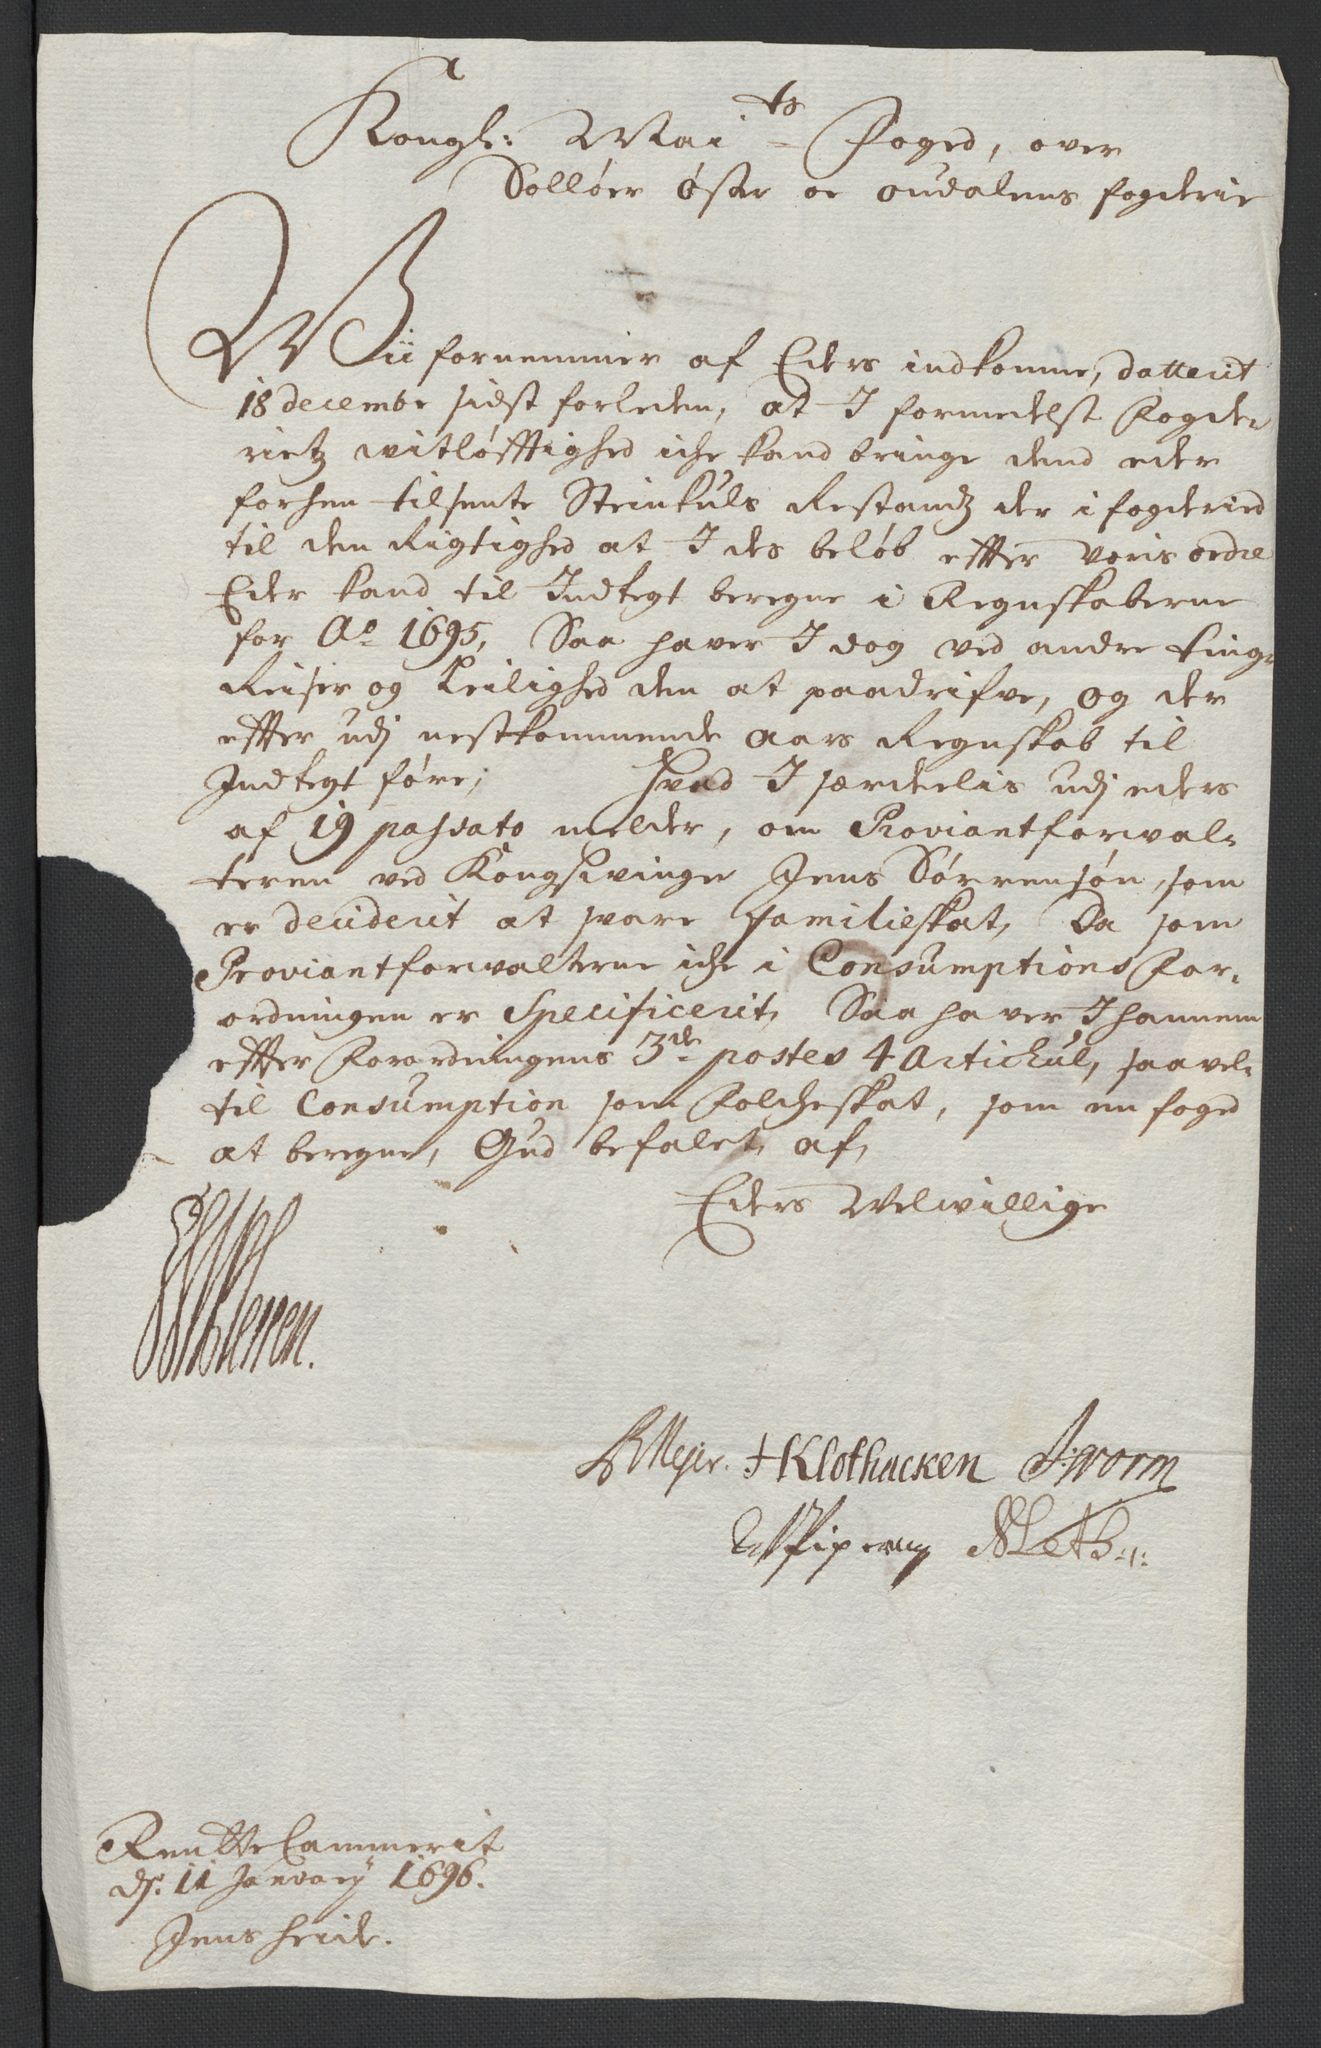 Kongl: Maits Foged, over
Solløer øster oc oudalens fogderie
Wii fornemmer af Eders indkomne, datterit
18 decembr sidst forleden, at I formedelst Fogde-
rietz witløfftighed iche kand bringe dend eder
forhen tilsente Steinkuls Restandz der i fogderied
til den Rigtighed at I des beløb effter voris ordre
Eder kand til Indtegt beregne i Regnskaberne
for Ao 1695, Saa haver I dog ved andre ting-
Reiser og Leilighed den at paadrifve, og der
effter udj nestkommende aars Regnskab til
Indtegt føre; Hvad I særdeelis udj eders
af 19 passato melder, om Proviantforval-
teren ved Kongswinge Jens Sørrensøn, som
er deciderit at svare familieskat, Da som
Proviantforvalterne iche i Consumptions For-
ordningen er Specificerit, Saa haver I hannem
effter Forordningens 3de postes 4 Artichul, saavel-
til Consumption som Folcheskat, som en foged
at beregne, Gud befalet, af,
Eders Velwillige
BMejer. HKlothacken J:Worm
Rentte Cammerit
ds. 11 January 1696.
Jens heide.